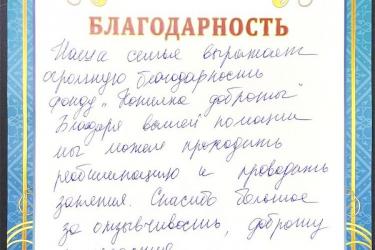 БЛАГОДАРНОСТЬ
Наша семья выражает
огромную благодарность
фонду "Копилка доброты"
Благодаря вашей помощи
мы можем проходить
реабилитацию и проводить
занятия. Спасибо большое
за отзывчивость, доброту